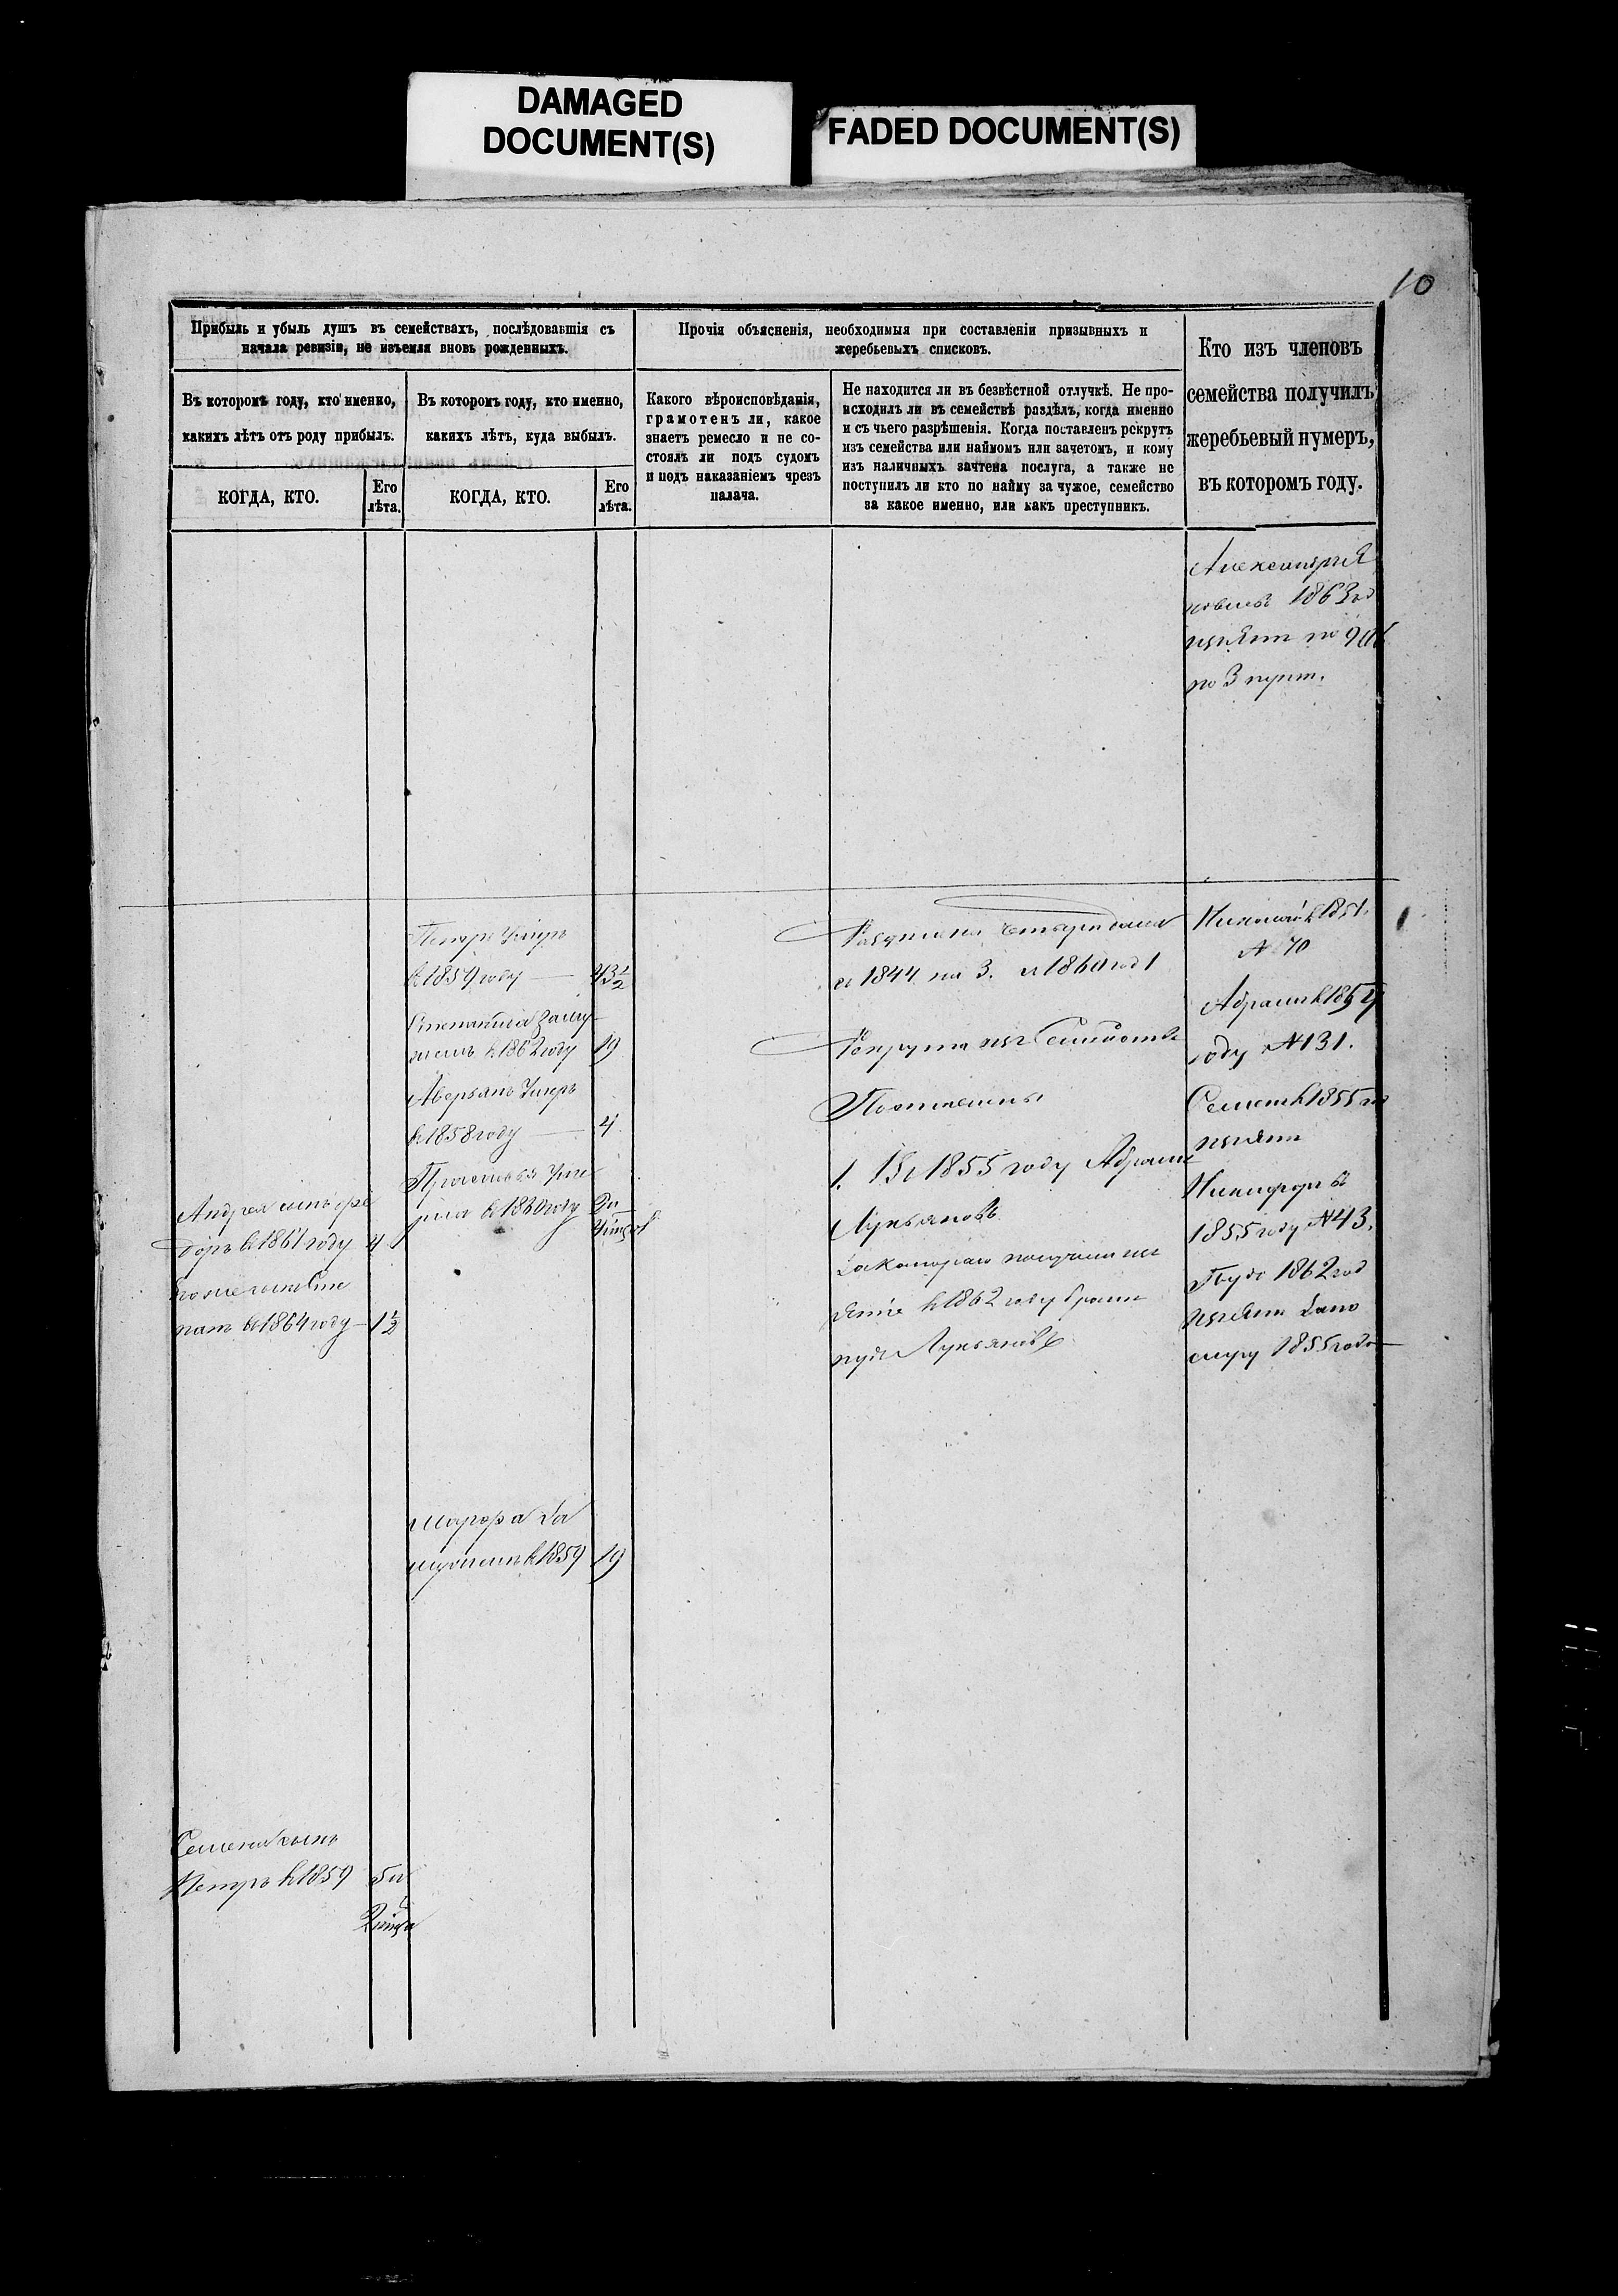 DAMAGED
DOCUMENT(S)
FADED DOCUMENT(S)
10
Прибыль и убыль душъ въ семействахъ, послѣдовавшія съ
начала ревизіи, не изъемля вновь рожденныхъ.
Въ которомъ году, кто именно,
какихъ лѣтъ отъ роду прибылъ.
КОГДА, КТО.
Его
лѣта.
Въ которомъ году, кто именно,
какихъ лѣтъ, куда выбылъ.
КОГДА, КТО.
Его
лѣта.
Прочія объясненія, необходимыя при составленіи призывныхъ и
жеребьевыхъ списковъ.
Какого вѣроисповѣданія,
грамотенъ ли, какое
знаетъ ремесло и не со-
стоялъ ли подъ судомъ
и подъ наказаніемъ чрезъ
палача.
Не находится ли въ безвѣстной отлучкѣ. Не про-
исходилъ ли въ семействѣ раздѣлъ, когда именно
и съ чьего разрѣшенія. Когда поставленъ рекрутъ
изъ семейства или наймомъ или зачетомъ, и кому
изъ наличныхъ зачтена послуга, а также не
поступилъ ли кто по найму за чужое, семейство
за какое именно, или какъ преступникъ.
Кто изъ членовъ
семейства получилъ
жеребьевый нумеръ,
въ которомъ году.
1863 год
изъят по
по 3 пункт.
Андрея сынъ Фе
доръ в 1861 году 4
сынъ Сте
панъ в 1864 году 1½
Семена сынъ
Петръ в 1859
Петръ умеръ
в 1859 году
Степанида заму
жемъ в 1862 году 19
Аверьянъ умеръ
в 1858 году 4
Прасковья уме
рла в 1860 году
Марфа за
мужемъ в 1859 19
с 1844 на 3. и 1860 год 1
Рекрута изъ Семейства
Поставлены
1. Въ 1855 году Абрамъ
Лукьяновъ
за котораго получили изъ
ятіе в 1862 году братъ
Лукьяновъ
Николай в 1851.
№ 70
Абрамъ в 1854
году № 131.
Семенъ в 1855 го
изъятъ
Никифоръ в
1855 году № 43.
1862 год
изъятъ
1855 года